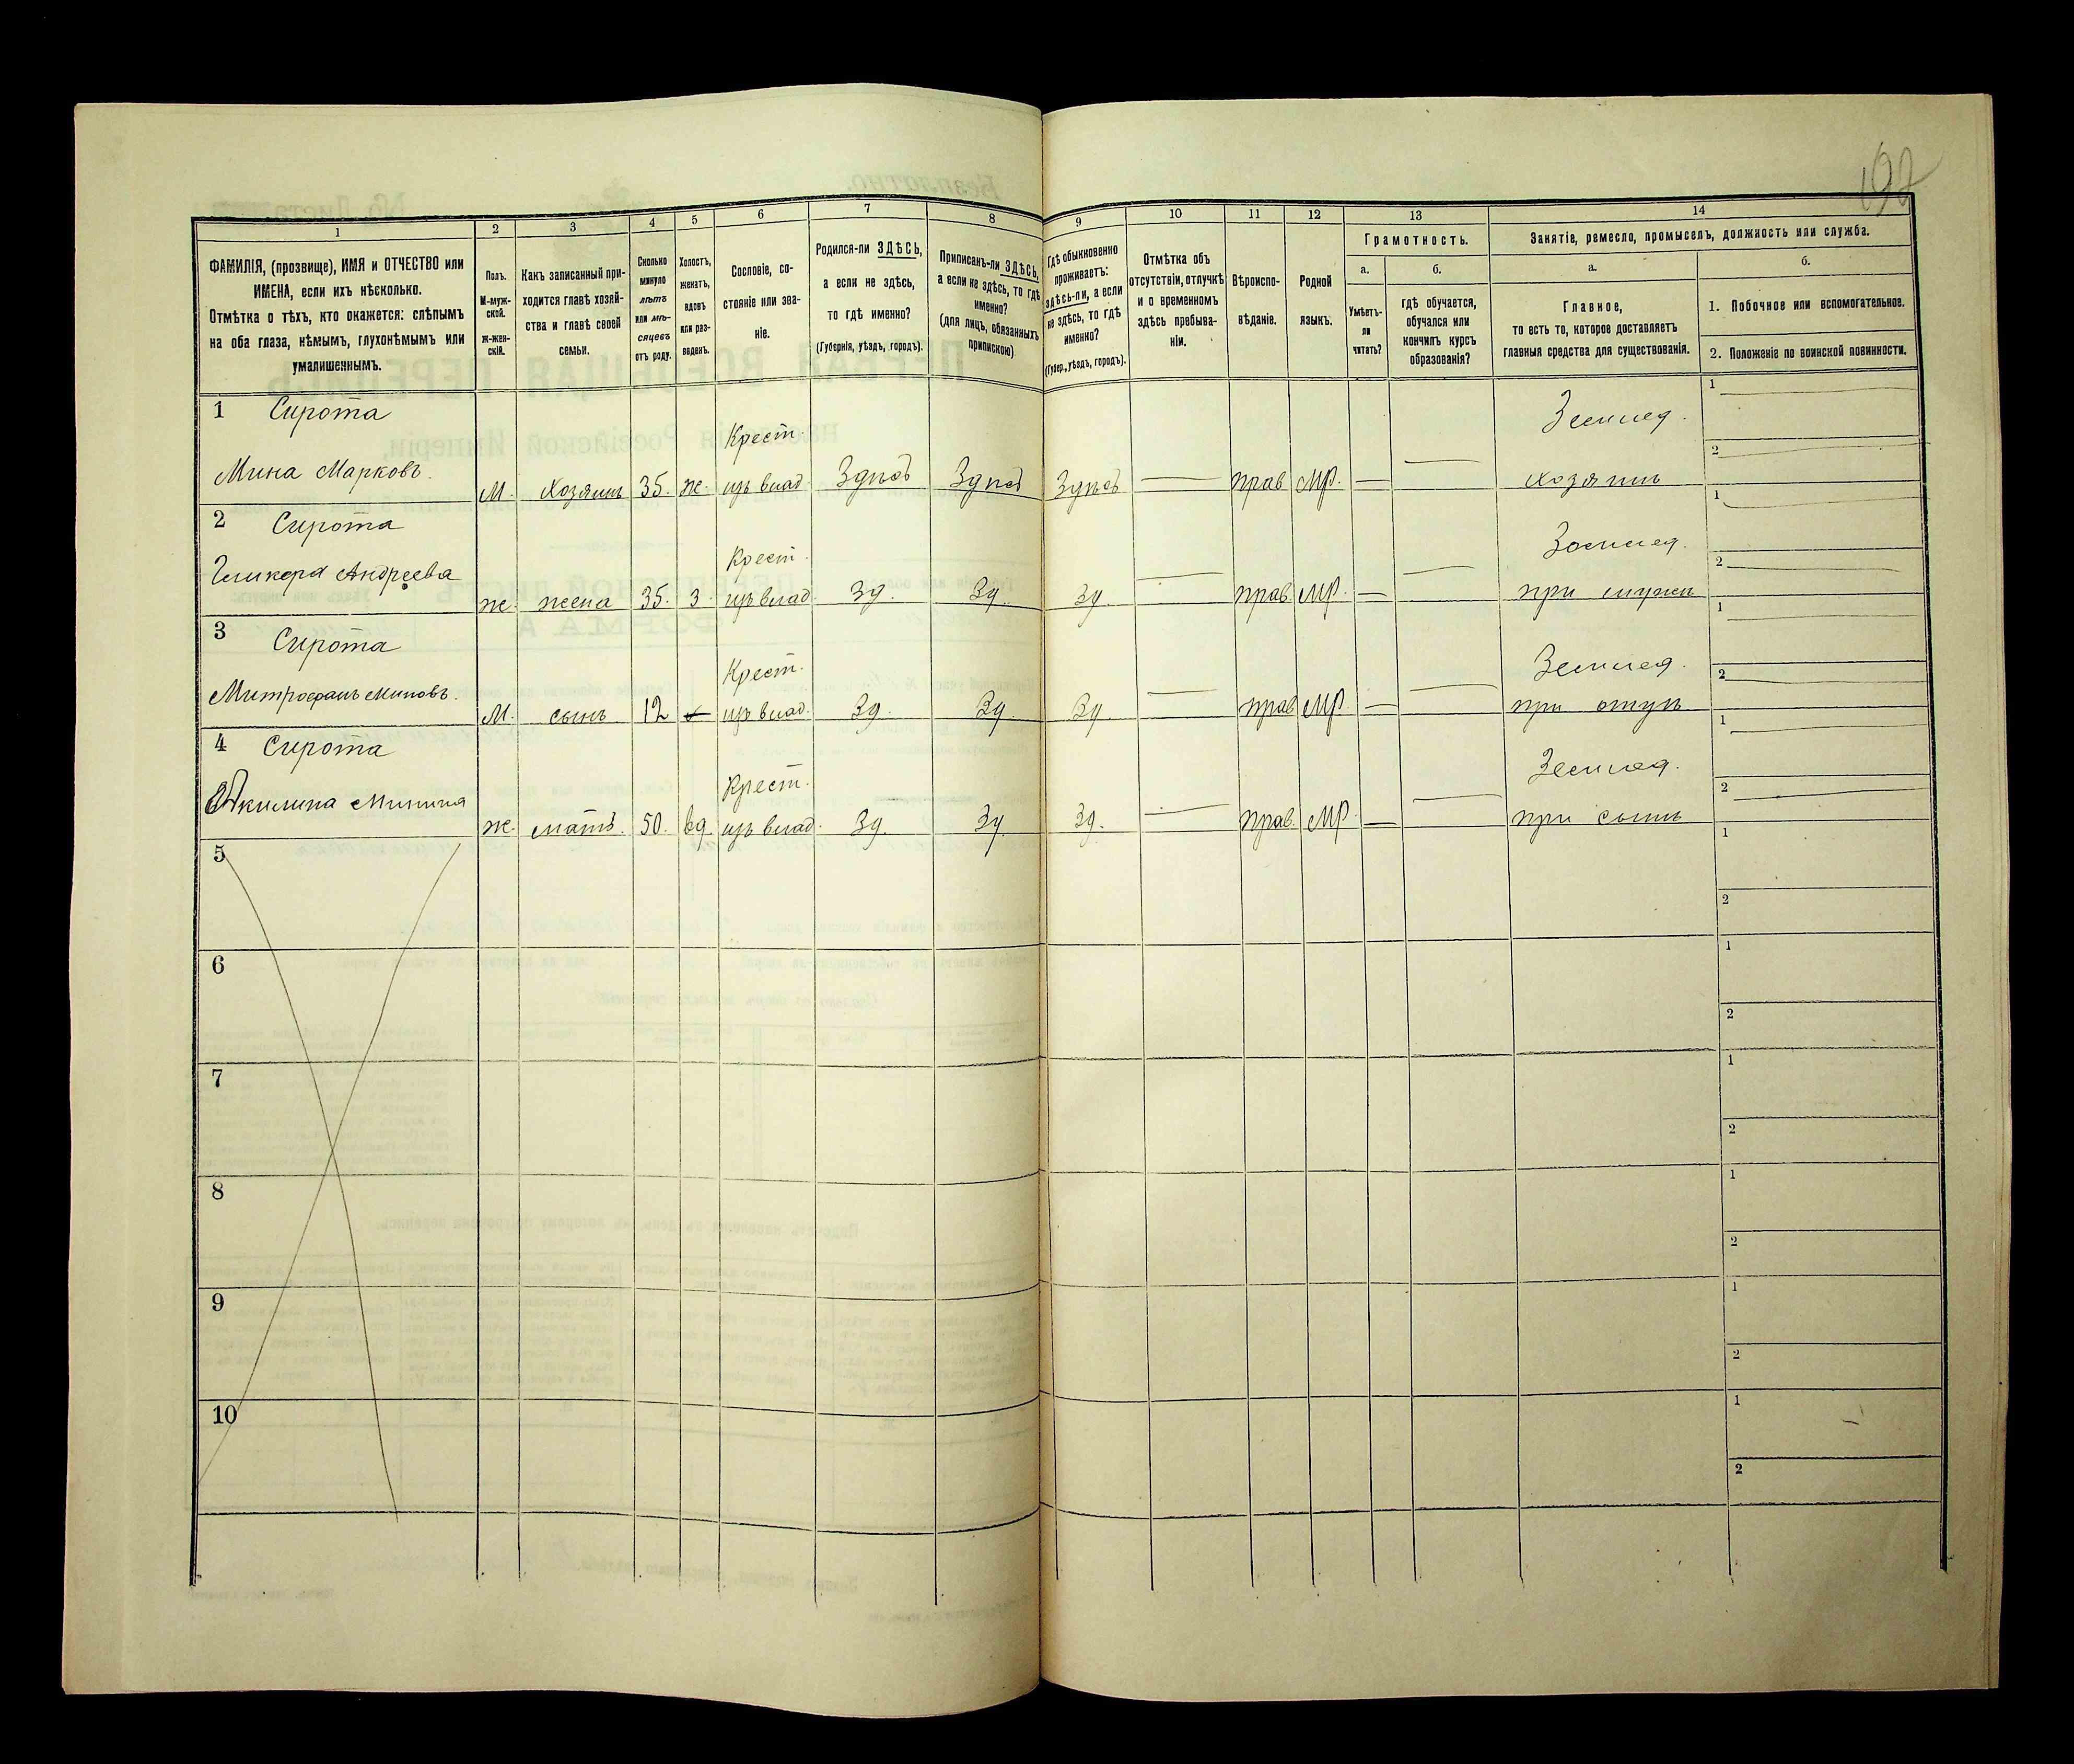 197
1 2 3 4 5 6 7 8 9 10 11 12 13 14
ФАМИЛІЯ, (прозвище), ИМЯ и ОТЧЕСТВО или
ИМЕНА, если ихъ нѣсколько.
Отмѣтка о тѣхъ, кто окажется: слѣпымъ
на оба глаза, нѣмымъ, глухонѣмымъ или
умалишеннымъ.
Полъ.
М-муж-
ской.
ж-жен-
скій.
Какъ записанный при-
ходится главѣ хозяй-
ства и главѣ своей
семьи.
Сколько
минуло
лѣтъ
или мѣ-
сяцевъ
отъ роду.
Холостъ,
женатъ,
вдовъ
или раз-
веденъ.
Сословіе, со-
стояніе или зва-
ніе.
Родился-ли ЗДѢСЬ,
а если не здѣсь,
то гдѣ именно?
(Губернія, уѣздъ, городъ).
Приписанъ-ли ЗДѢСЬ,
а если не здѣсь, то гдѣ
именно?
(для лицъ, обязанныхъ
припискою)
Гдѣ обыкновенно
проживаетъ:
здѣсь-ли, а если
не здѣсь, то гдѣ
именно?
(Губер., уѣздъ, городъ).
Отмѣтка объ
отсутствіи, отлучкѣ
и о временномъ
здѣсь пребыва-
ніи.
Вѣроиспо-
вѣданіе.
Родной
языкъ.
Грамотность.
а.
Умѣетъ-
ли
читать?
б.
гдѣ обучается,
обучался или
кончилъ курсъ
образованія?
Занятіе, ремесло, промыселъ, должность или служба.
а.
Главное,
то есть то, которое доставляетъ
главныя средства для существованія.
б.
1. Побочное или вспомогательное.
2. Положеніе по воинской повинности.
1 Сирота Крест. Землед. 1
2
Мина Марковъ. М. Хозяинъ 35. ж. изъ влад Здѣсь Здѣсь Здѣсь — прав МР. — — хозяинъ
2 Сирота Крест. Землед. 1
2
Гликера Андреева ж. жена 35. З. изъ влад. Зд. Зд. Зд. — прав. МР. — — при мужѣ
3 Сирота Крест. Землед. 1
2
Митрофанъ Миновъ. М. сынъ 12 изъ влад. Зд. Зд. Зд. — прав МР. — — при отцѣ
4 Сирота Крест. Землед. 1
2
Акилина Минина ж. мать. 50. вд. изъ влад. Зд. Зд. Зд. — прав. МР. — — при сынѣ
5 1
2
6 1
2
7 1
2
8 1
2
9 1
2
10 1
2